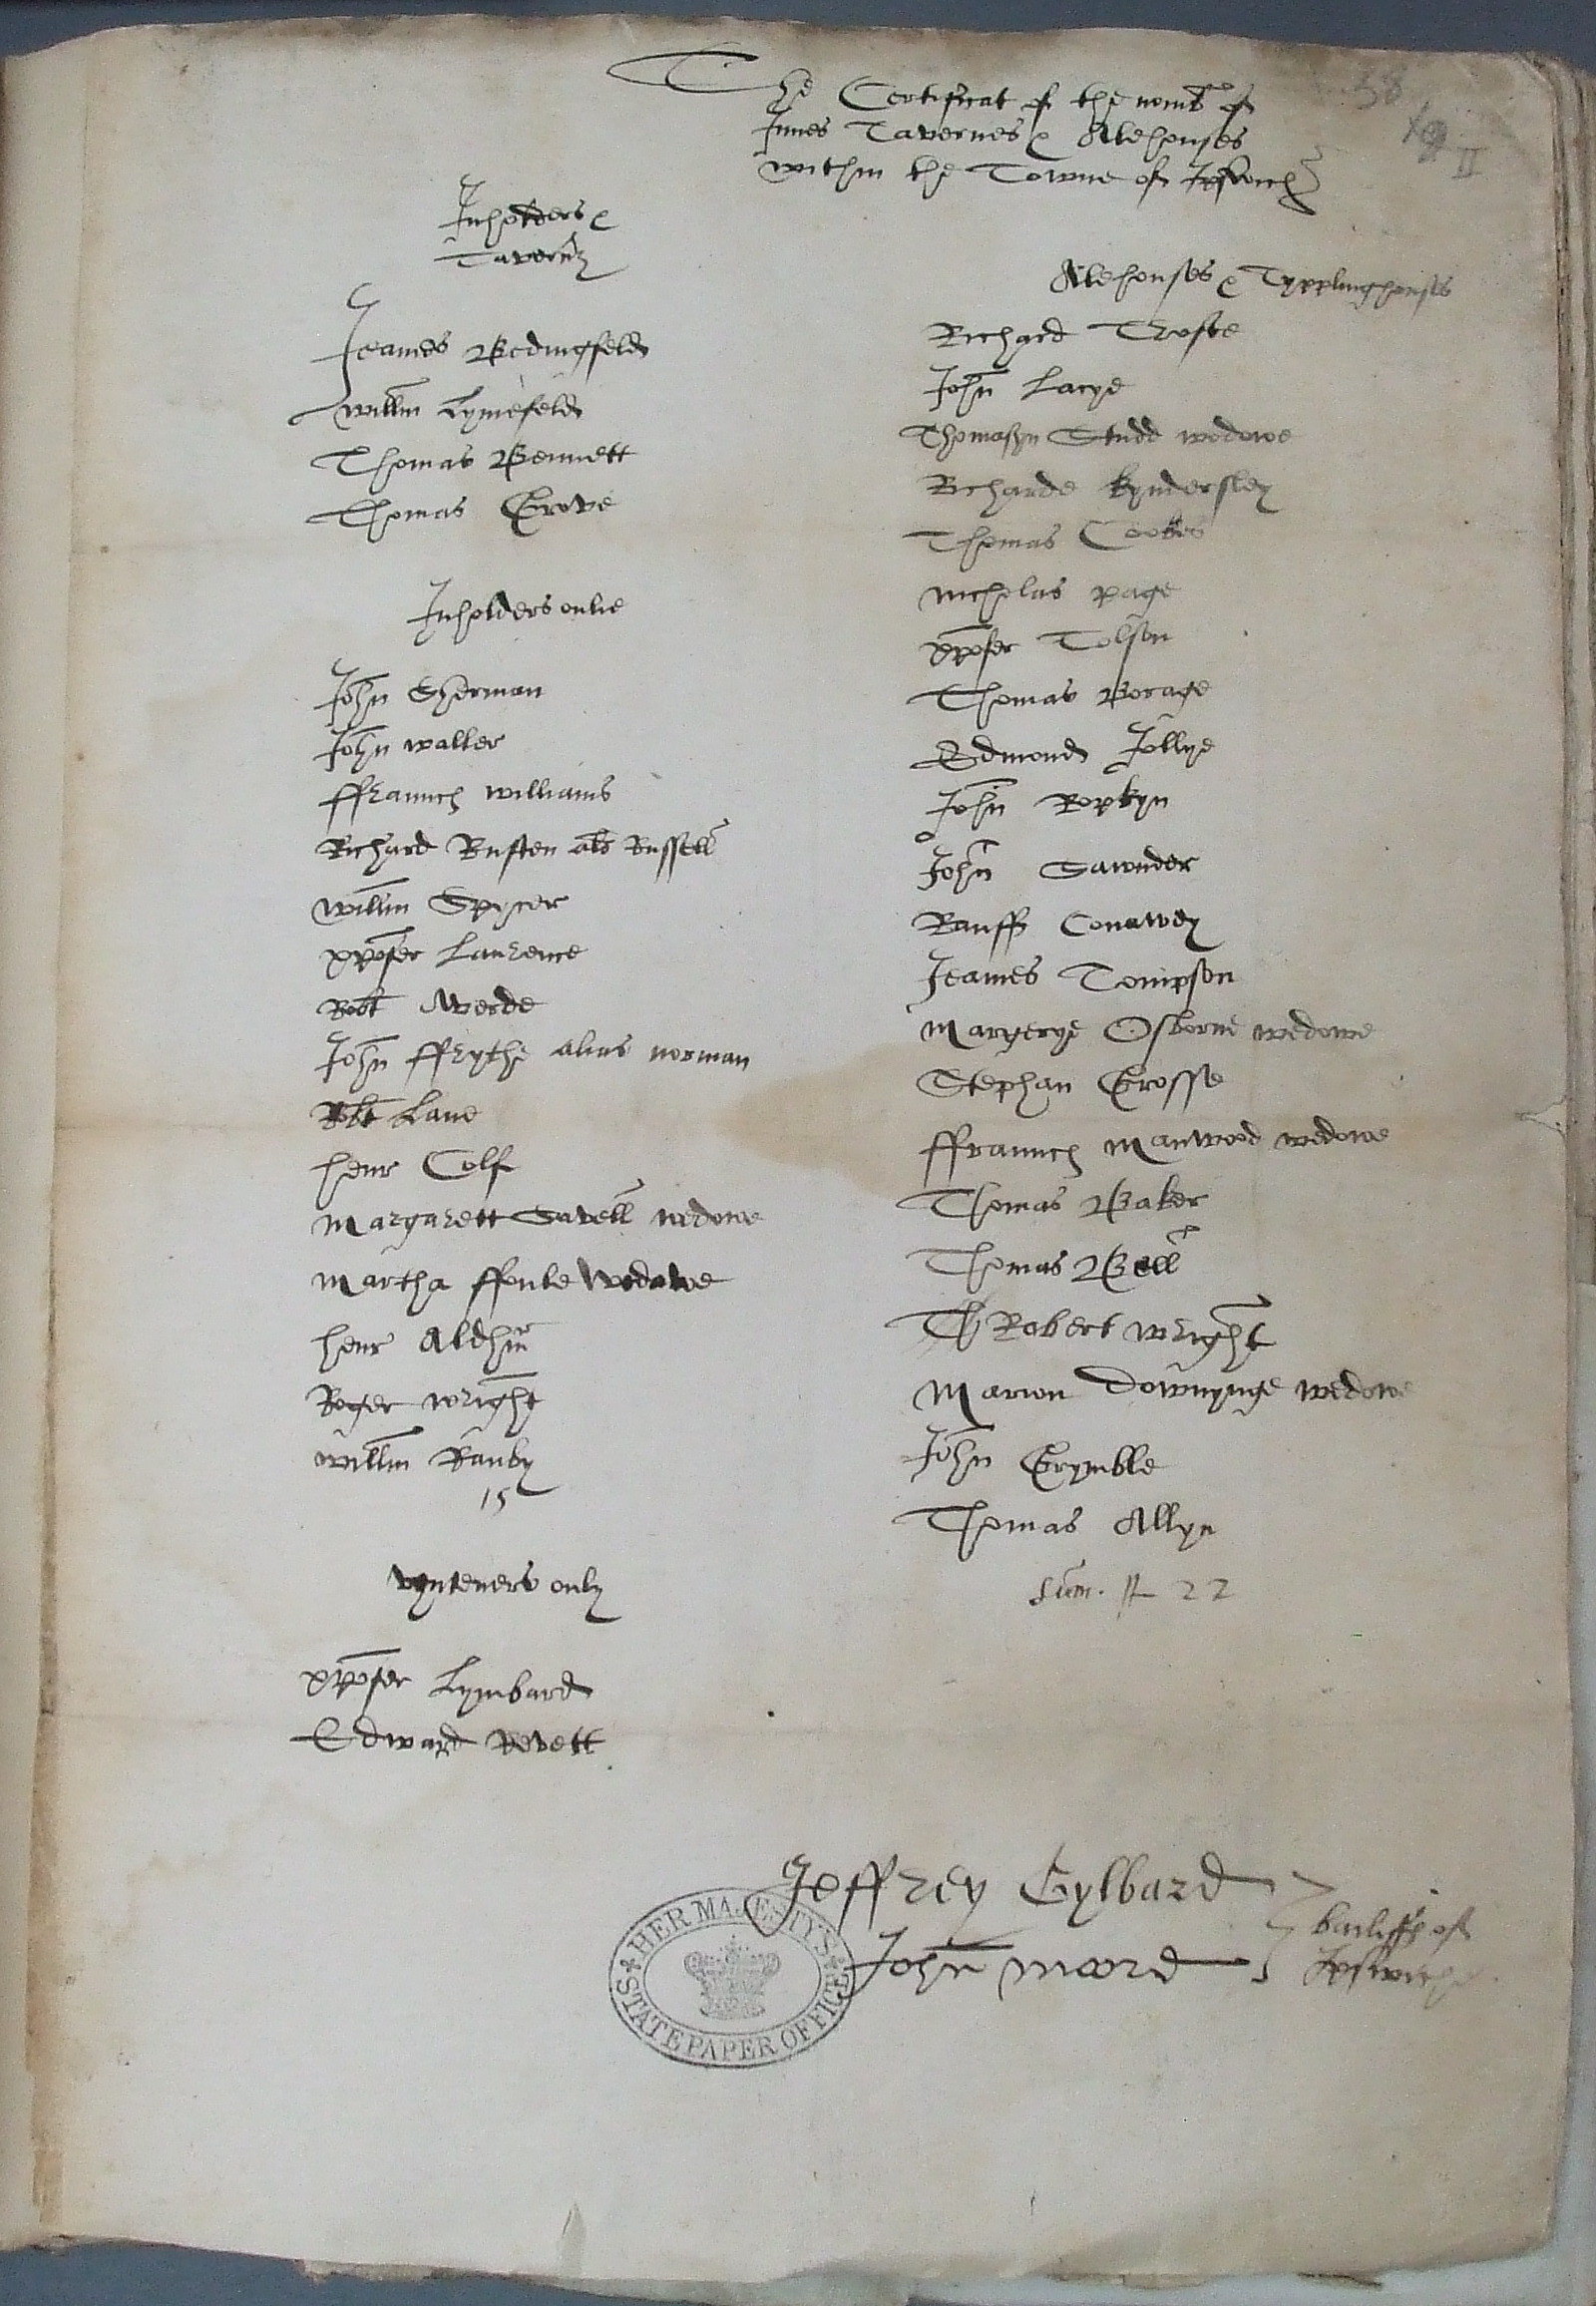 The Certificat of the nomb of
Innes Tavernes & Alehouses
within the Towne of Ipswich
58
II
Inholders &
Taverns
Jeames Bedingfeld
Willm Lymefeld
Thomas Bennett
Thomas Grove
Inholders onlie
John Sherman
John Waller
ffraunch Williams
Richard Busten als Bussell
Willm Spycer
Xpofer Laurence
Robt Werde
John ffrythe alias norman
Robt Lane
henr Colf
Margarett Savell wedowe
Martha ffoule Wedowe
henr Aldhm
Roger Wright
Willm Ranby
15
Vynteners only
Xpofer Lymbard
Edward Revett
Alehouses & Typplinghouses
Richard Troste
John Lacye
Thomasyn Studd wedowe
Richarde Kyndersley
Thomas Cookes
Nicholas page
Xpofer Tolson
Thomas Borage
Edmond Jollye
John Ropkyn
John Sawnder
Rauff Conawey
Jeames Tompson
Margerye Osborne wedowe
Stephan Grosse
ffraunch Manwood wedowe
Thomas Baker
Thomas Bell
Th Robert Wright
Marion Downynge wedowe
John Grymble
Thomas Allyn
Sum. 22
Jeffrey Gylbard
John Moore
bailiffs of
Ipswiche
HER MAJESTY'S STATE PAPER OFFICE